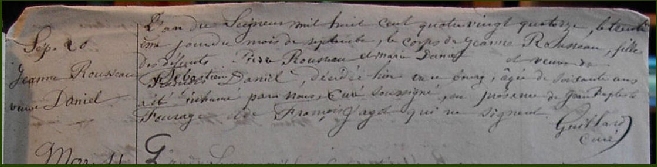 L'an du Seigneur mil huit cent quatre vingt quatorze, le trenti
Sep. 20. ème jour du mois de septembre, le corps de Jeanne Rousseau, fille
des défunts Rousseau et marie et veuve de
Jeanne Rousseau Daniel, décédée hier en ce bourg, agée de soixante ans
veuve Daniel a été inhumé par nous, Curé soussigné, en présence de Jean Baptiste
Fourage et de François Jagot qui ne signent.
Guittard
Curé